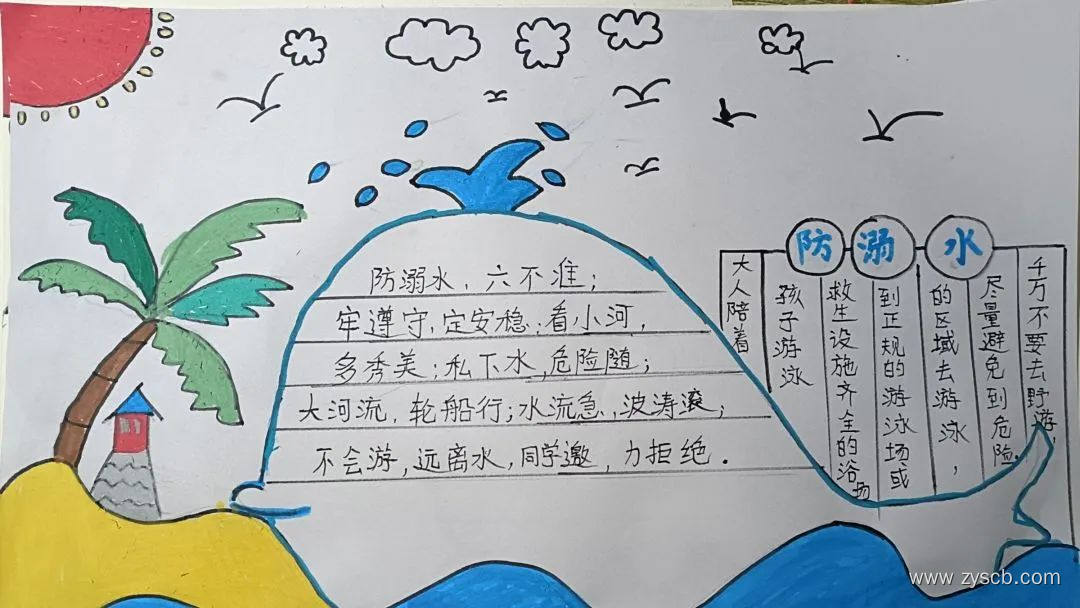 防溺水
防溺水，六不准；
牢遵守，定安稳；看小河，
多秀美；私下水，危险随；
大河流，轮船行；水流急，波涛滚；
不会游，远离水，同学邀，力拒绝.
千万不要去野游，
尽量避免到危险
的区域去游泳，
到正规的游泳场或
救生设施齐全的浴场
孩子游泳
大人陪着
www.zyscb.com